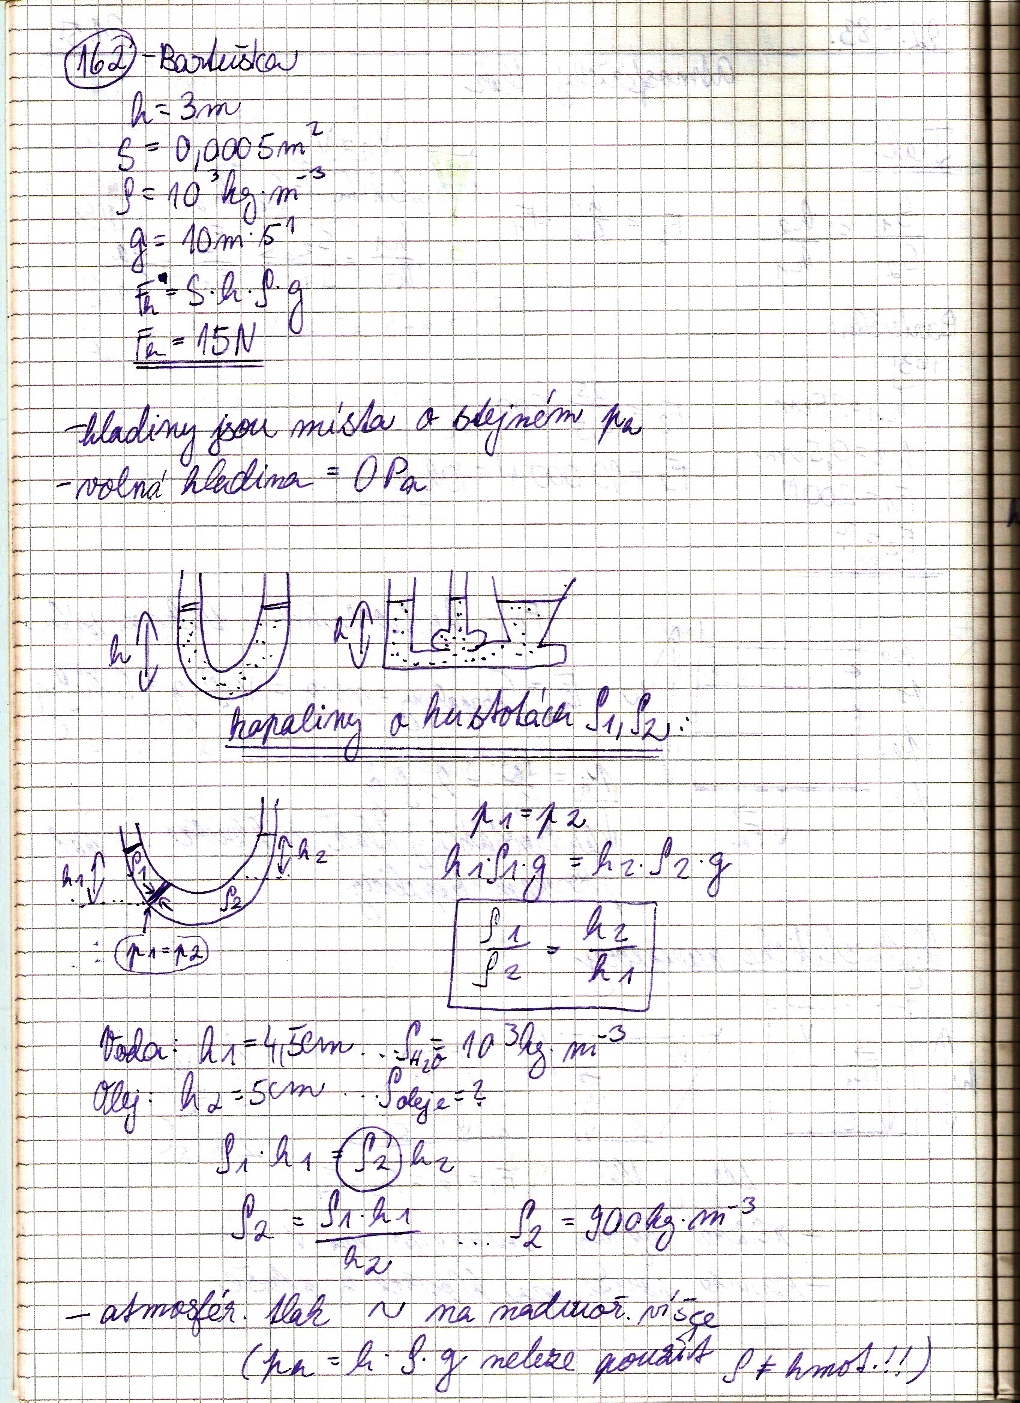 162 - Bartuška
h = 3m
S = 0,0005m²
ρ = 10³ kg·m⁻³
g = 10m·s¹
Fh = S·h·ρ·g
Fh = 15N
- hladiny jsou místa o stejném ph
- volná hladina = 0Pa
h h
kapaliny o hustotách ρ1, ρ2:
p1 = p2
h1·ρ1·g = h2·ρ2·g
ρ1/ρ2 = h2/h1
h1 ρ1 ρ2 h2
p1 = p2
Voda: h1 = 4,5cm ... ρH₂O = 10³kg·m⁻³
Olej: h2 = 5cm ... ρoleje = ?
ρ1·h1 = ρ2·h2
ρ2 = ρ1·h1/h2 ... ρ2 = 900kg·m⁻³
- atmosfér. tlak ~ na nadmoř. výšce
(ph = h·ρ·g nelze použít ρ ≠ hmot.!!)